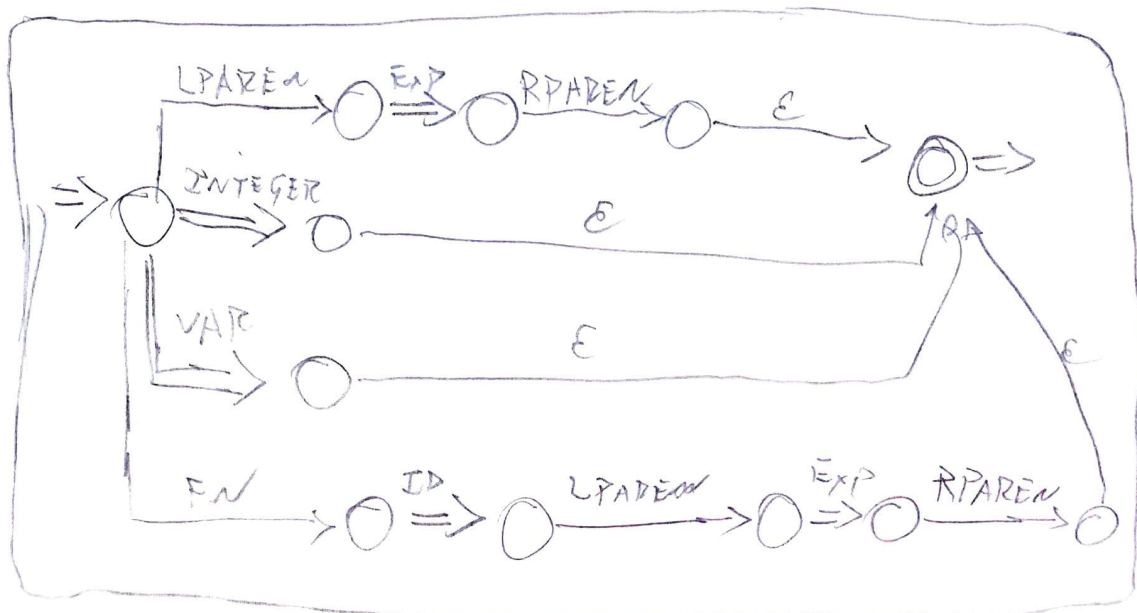 LPAREN EXP RPAREN ε
INTEGER ε
VAR ε
ε
FN ID LPAREN EXP RPAREN